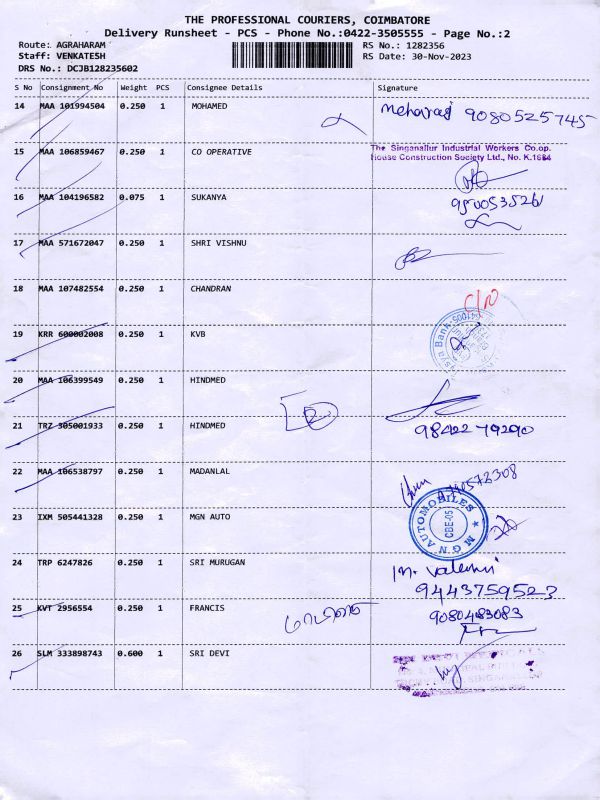 THE PROFESSIONAL COURIERS, COIMBATORE
Delivery Runsheet - PCS - Phone No.:0422-3505555 - Page No.:2
Route: AGRAHARAM RS No.: 1282356
Staff: VENKATESH RS Date: 30-Nov-2023
DRS No.: DCJB128235602
S No Consignment No Weight PCS Consignee Details Signature
14 MAA 101994504 0.250 1 MOHAMED 9080525745
The Singanallur Industrial Workers Co.op.
15 MAA 106859467 0.250 1 CO OPERATIVE House Construction Society Ltd., No. K.1684
16 MAA 104196582 0.075 1 SUKANYA
17 MAA 571672047 0.250 1 SHRI VISHNU
18 MAA 107482554 0.250 1 CHANDRAN C/N
19 KRR 600002008 0.250 1 KVB
20 MAA 106399549 0.250 1 HINDMED
21 TRZ 305001933 0.250 1 HINDMED 9842279290
22 MAA 106538797 0.250 1 MADANLAL
23 IXM 505441328 0.250 1 MGN AUTO M G N AUTOMOBILES CBE-05
24 TRP 6247826 0.250 1 SRI MURUGAN
9443759523
25 KVT 2956554 0.250 1 FRANCIS 9080483083
26 SLM 333898743 0.600 1 SRI DEVI